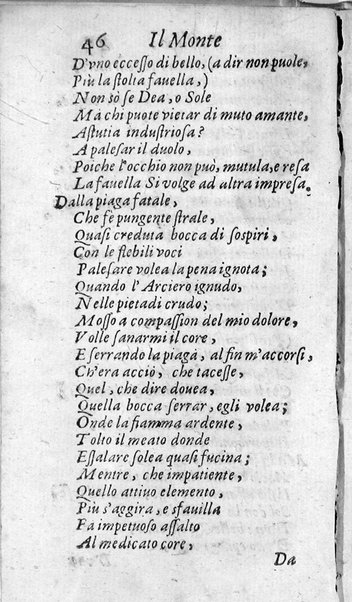 46 Il Monte
D'vno eccesso di bello, (a dir non puole,
Più la stolta fauella,)
Non sò se Dea, o Sole
Mà chi puote vietar di muto amante,
Astutia industriosa?
A palesar il duolo,
Poiche l'occhio non può, mutula, e resa
La fauella Si volge ad altra impresa.
Dalla piaga fatale,
Che fè pungente strale,
Quasi creduta bocca di sospiri,
Con le flebili voci
Palesare volea la pena ignota;
Quando l'Arciero ignudo,
Nelle pietadi crudo;
Mosso a compassion del mio dolore,
Volle sanarmi il core,
E serrando la piaga, al fin m'accorsi,
Ch'era acciò, che tacesse,
Quel, che dire douea,
Quella bocca serrar, egli volea;
Onde la fiamma ardente,
Tolto il meato donde
Essalare solea quasi fucina;
Mentre, che impatiente,
Quello attiuo elemento,
Più s'aggira, e sfauilla
Fa impetuoso assalto
Al medicato core,
Da